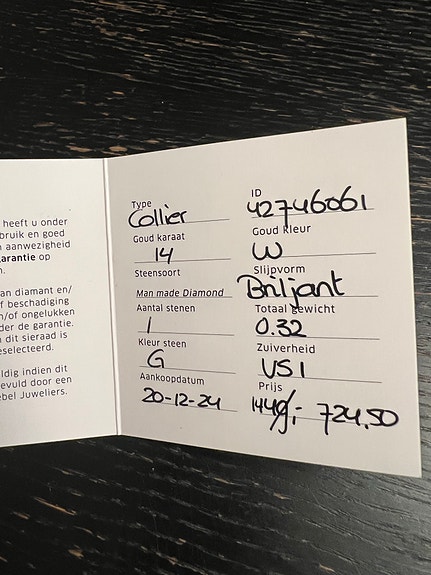 heeft u onder
bruik en goed
n aanwezigheid
garantie op
n.
an diamant en/
f beschadiging
n/of ongelukken
der de garantie.
n dit sieraad is
eselecteerd.
ldig indien dit
evuld door een
ebel Juweliers.
Type
Collier
ID
42746061
Goud karaat
14
Goud kleur
W
Steensoort
Man made Diamond
Slijpvorm
Briljant
Aantal stenen
1
Totaal gewicht
0.32
Kleur steen
G
Zuiverheid
VS1
Aankoopdatum
20-12-24
Prijs
1449,- 724,50